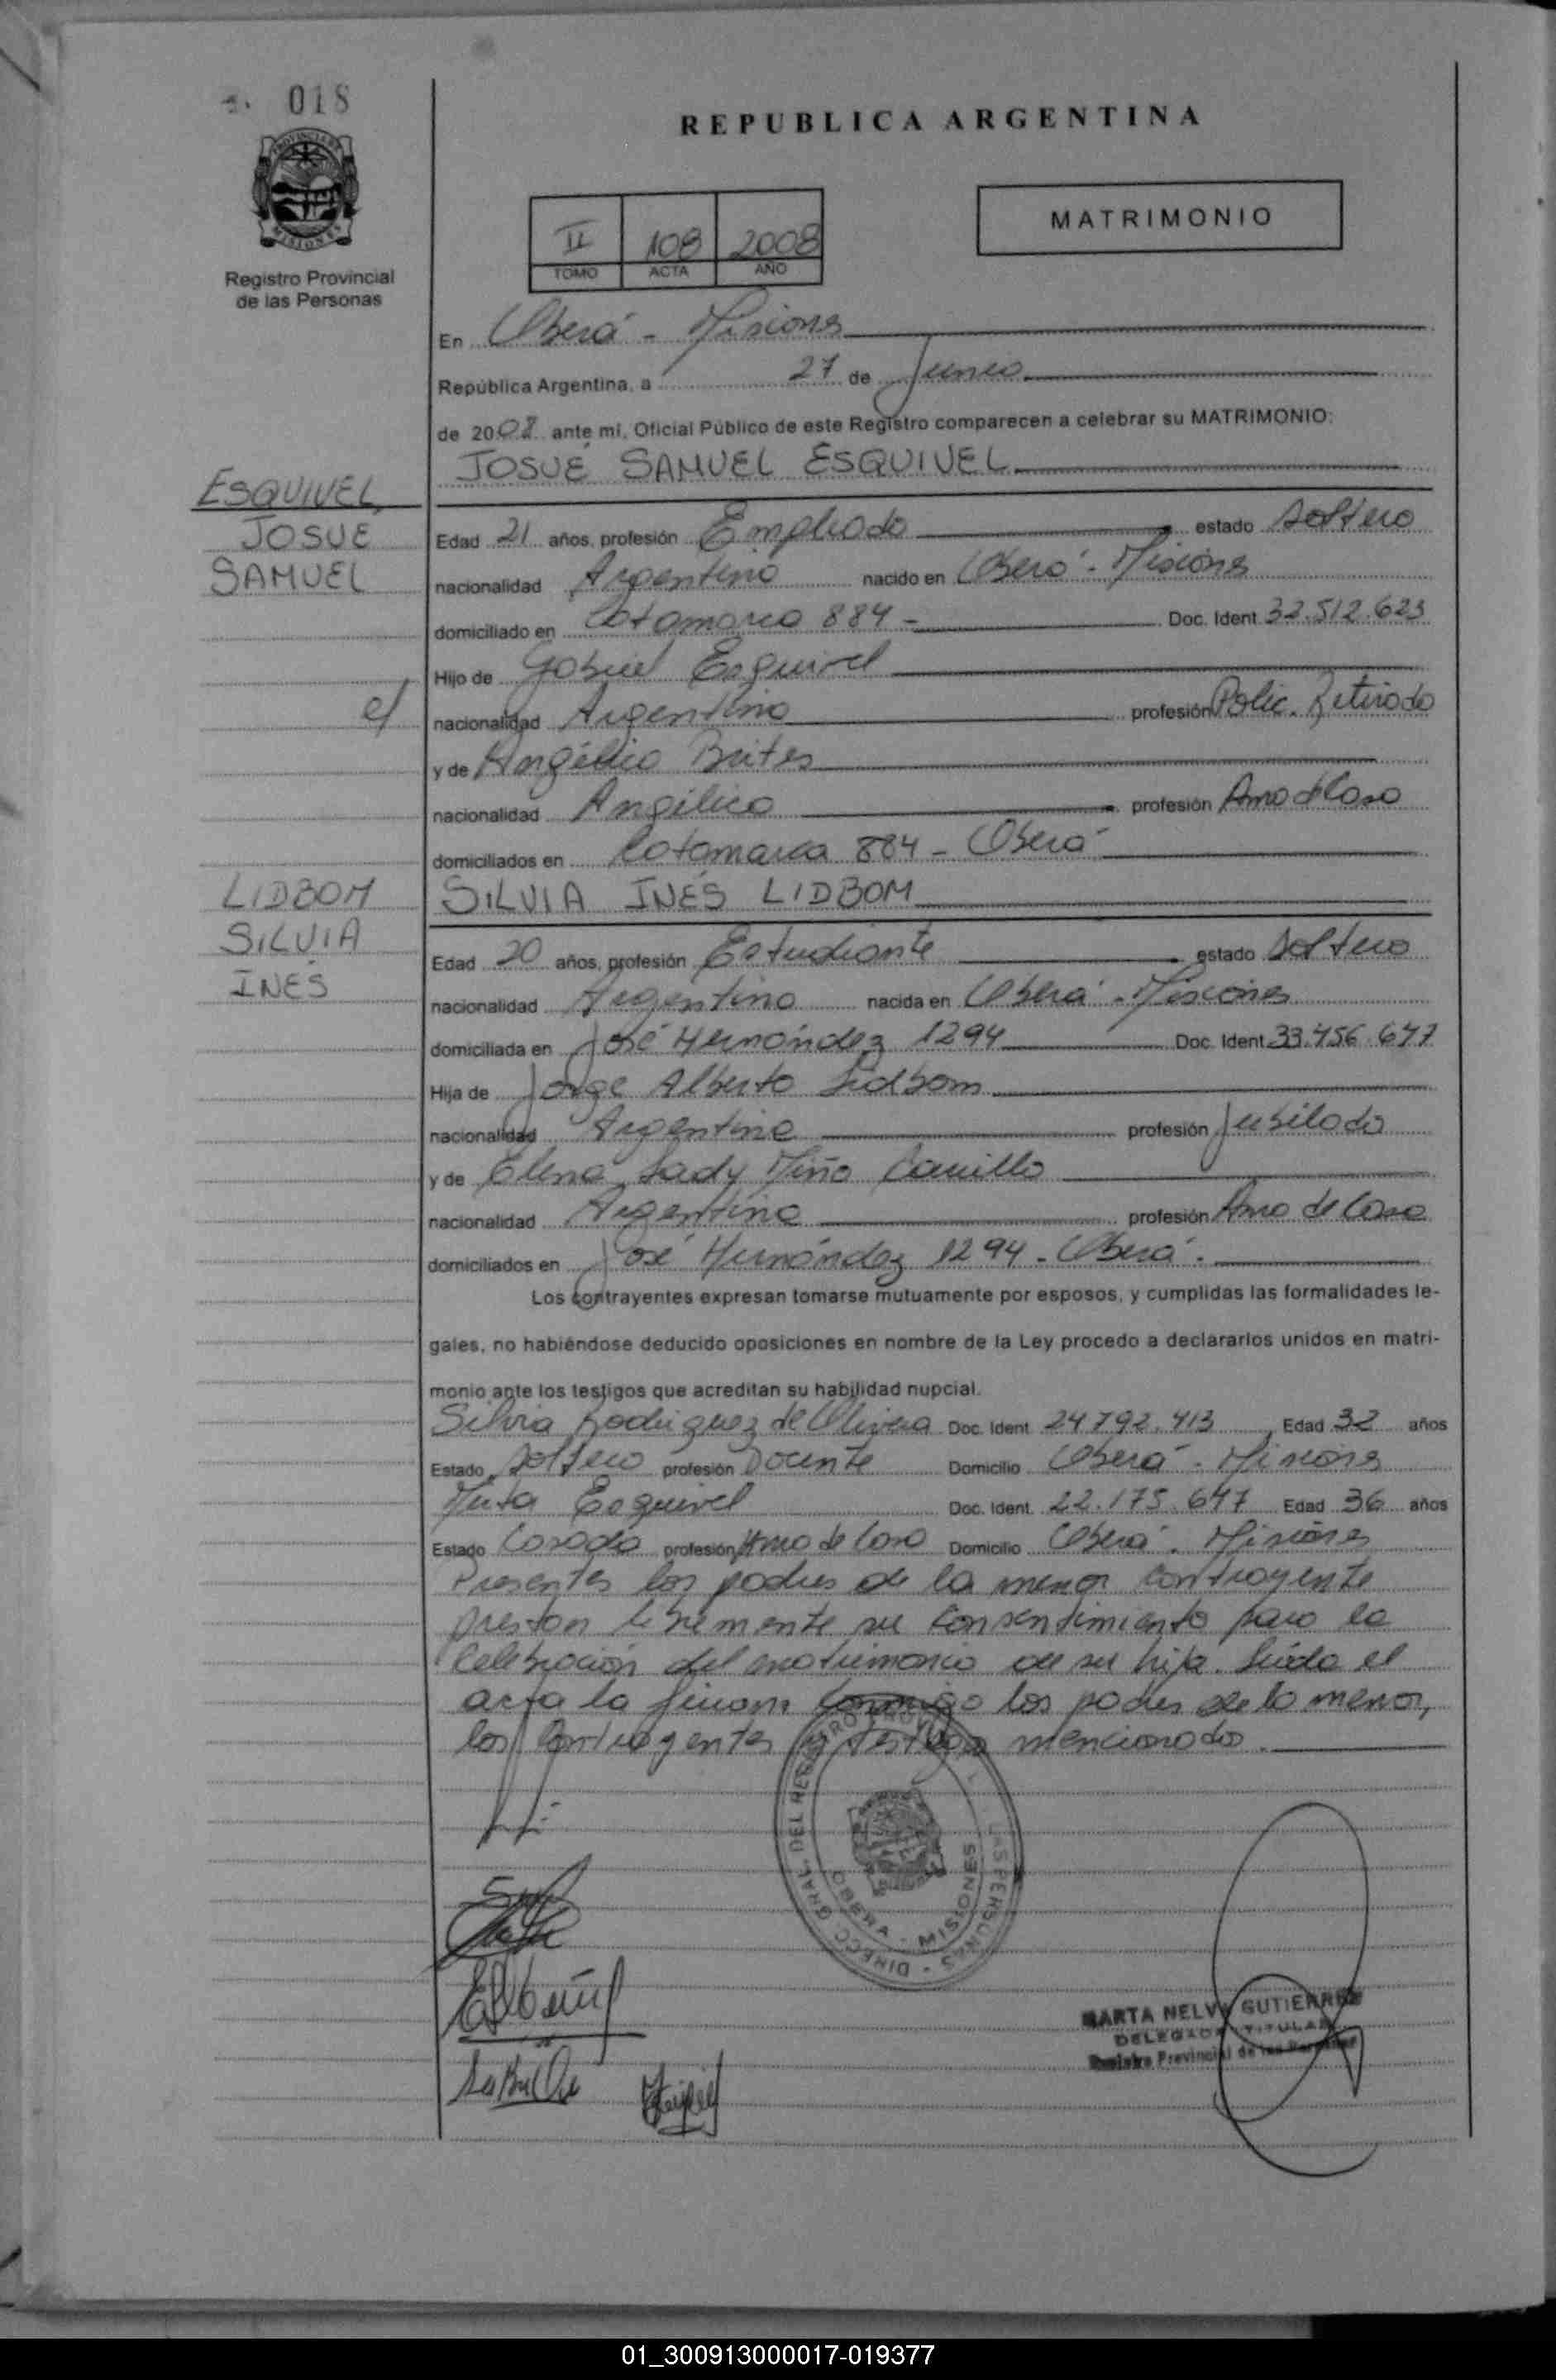 018
REPUBLICA ARGENTINA
PROVINCIA DE
MISIONES
Registro Provincial
de las Personas
II 108 2008
TOMO ACTA AÑO
MATRIMONIO
En Oberá - Misiones
República Argentina, a 27 de Junio
de 2008 ante mi, Oficial Público de este Registro comparecen a celebrar su MATRIMONIO:
JOSUÉ SAMUEL ESQUIVEL
ESQUIVEL,
JOSUE
SAMUEL
Edad 21 años, profesión Empleado estado soltero
nacionalidad Argentina nacido en Oberá - Misiones
domiciliado en Catamarca 884 - Doc. Ident 32.512.623
Hijo de Gabriel Esquivel
c/
nacionalidad Argentina profesión Polic. Retirado
y de Angélica Brites
nacionalidad Angélica profesión Ama d Casa
domiciliados en Catamarca 884 - Oberá
LIDBOM
SILVIA
INES
SILVIA INÉS LIDBOM
Edad 20 años, profesión Estudiante estado Soltera
nacionalidad Argentina nacida en Oberá - Misiones
domiciliada en José Hernández 1294 Doc. Ident 33.456.647
Hija de Jorge Alberto Lidbom
nacionalidad Argentina profesión Jubilado
y de Elena Lady Miño Carrillo
nacionalidad Argentina profesión Ama de Casa
domiciliados en José Hernández 1294 - Oberá.
Los contrayentes expresan tomarse mutuamente por esposos, y cumplidas las formalidades le-
gales, no habiéndose deducido oposiciones en nombre de la Ley procedo a declararlos unidos en matri-
monio ante los testigos que acreditan su habilidad nupcial.
Silvia Rodriguez de Olivera Doc. Ident 24.792.413 Edad 32 años
Estado Soltera profesión Docente Domicilio Oberá - Misiones
Mirta Esquivel Doc. Ident. 22.175.647 Edad 36 años
Estado Casada profesión Ama de Casa Domicilio Oberá - Misiones
Presentes los padres de la menor contrayente
prestan libremente su consentimiento para la
Celebración del matrimonio de su hija. Leída el
acta la firman conmigo los padres de la menor,
los contrayentes y testigos mencionados.
DIRECC GRAL. DEL REGISTRO PROVINCIAL LAS PERSONAS -
OBERA - MISIONES
MARTA NELVA GUTIERREZ
DELEGADA TITULAR
Registro Provincial de las Personas
01_300913000017-019377